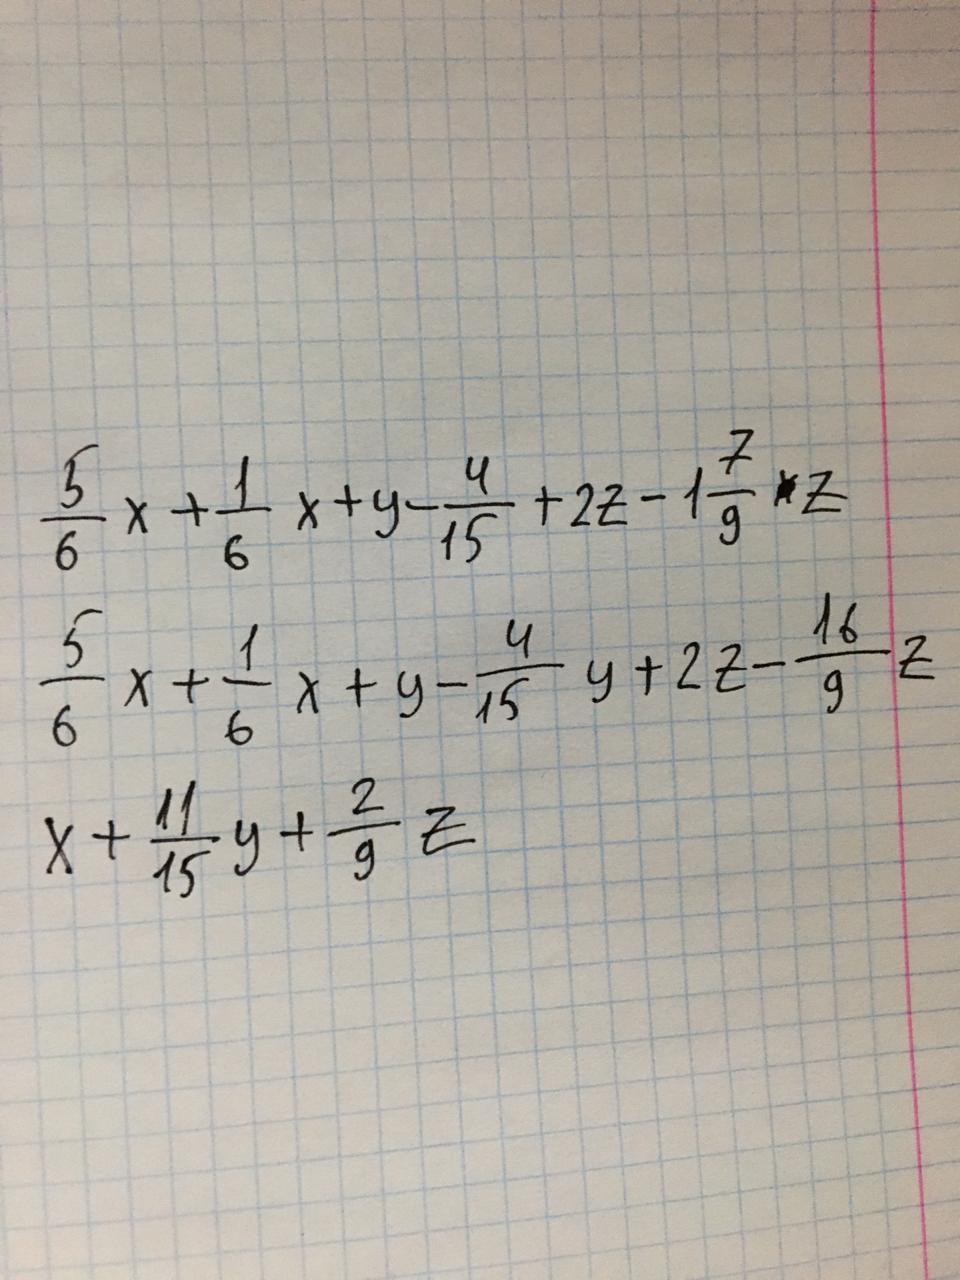 5/6 x + 1/6 x + y - 4/15 + 2z - 1 7/9 * z
5/6 x + 1/6 x + y - 4/15 y + 2z - 16/9 z
x + 11/15 y + 2/9 z